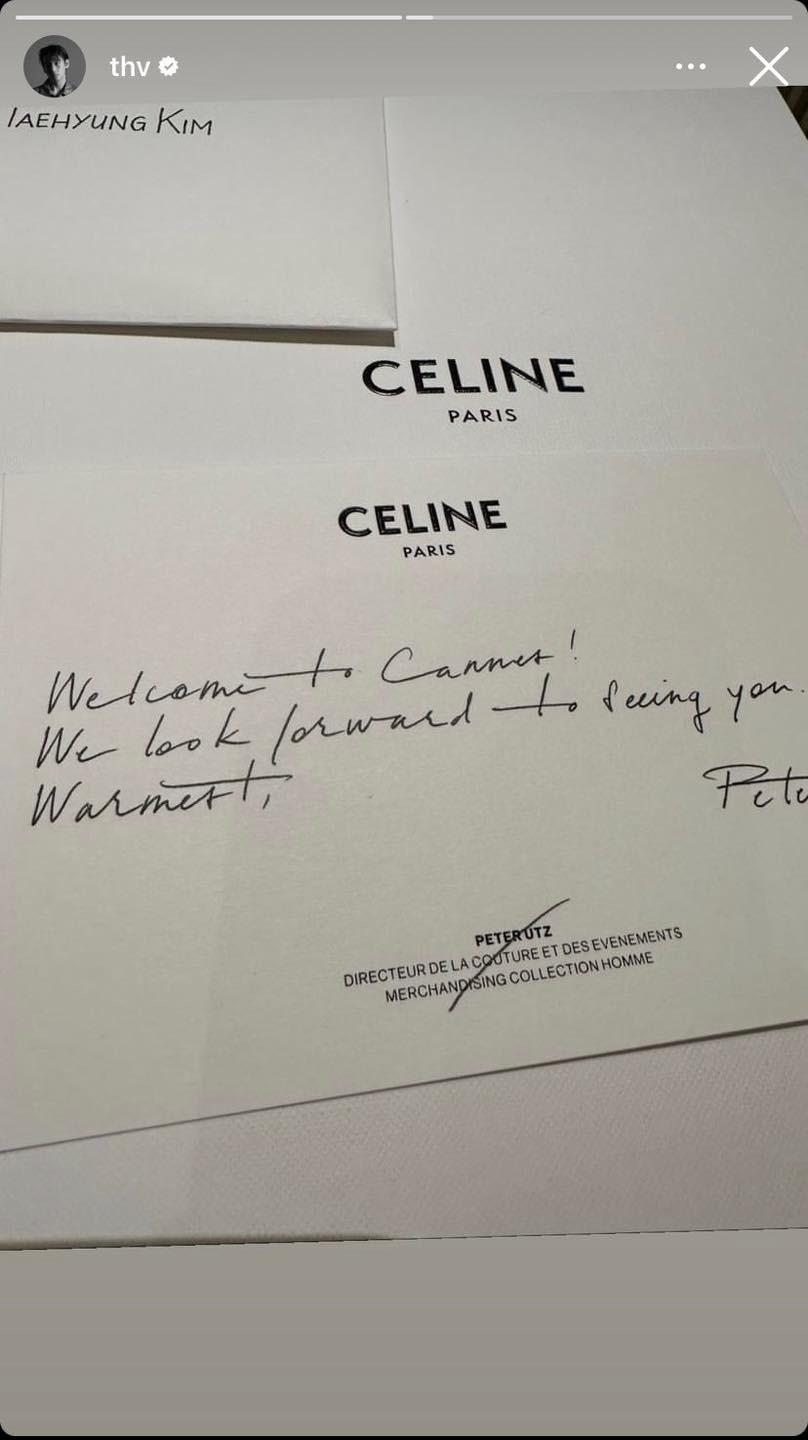 thv
TAEHYUNG KIM
CELINE
PARIS
CELINE
PARIS
Welcome to Cannes!
We look forward to seeing you.
Warmest,
Pete
PETER UTZ
DIRECTEUR DE LA COUTURE ET DES EVENEMENTS
MERCHANDISING COLLECTION HOMME